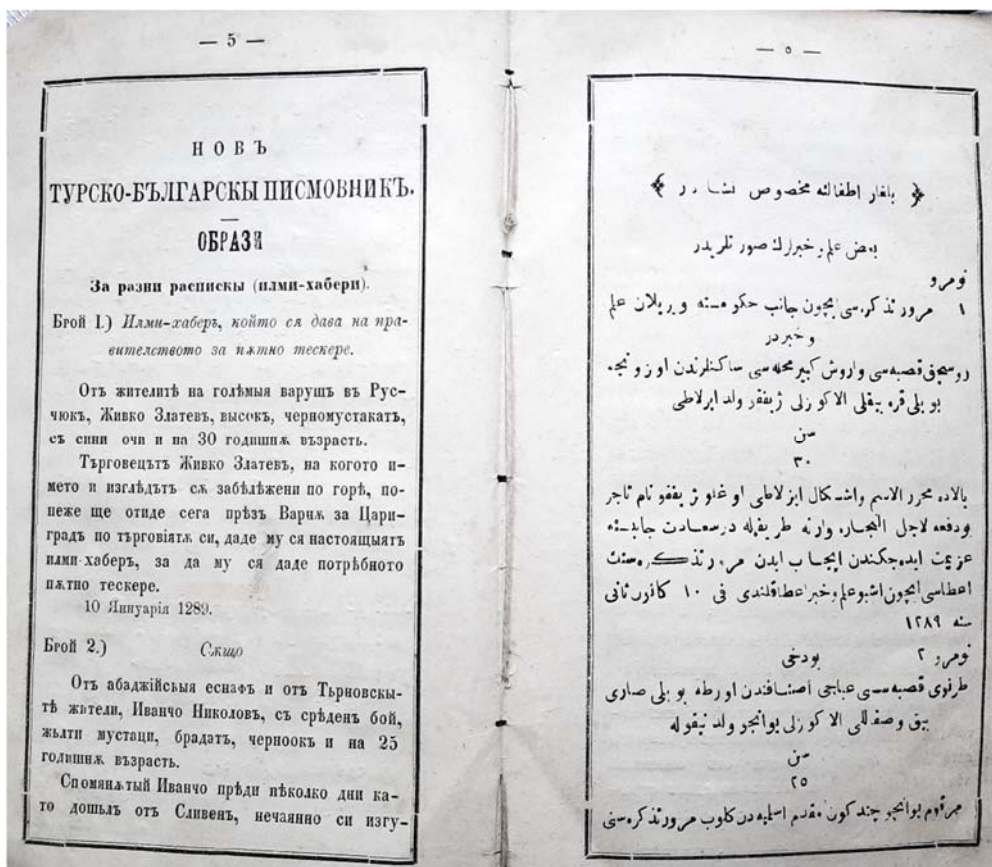 — 5 —
НОВЪ
ТУРСКО-БЪЛГАРСКЫ ПИСМОВНИКЪ.
ОБРАЗИ
За разни расписки (илми-хабери).
Брой 1.) Илми-хаберъ, който ся дава на пра-
вителството за пѫтно тескере.
Отъ жителитѣ на голѣмыя варушъ въ Рус-
чюкъ, Живко Златевъ, высокъ, черномустакатъ,
съ сини очи и на 30 годишнѫ възрасть.
Търговецътъ Живко Златевъ, на когото и-
мето и изгледътъ сѫ забѣлѣжени по горѣ, по-
неже ще отиде сега прѣзъ Варнѫ за Цари-
градъ по търговіятѫ си, даде му ся настоящыятъ
илми-хаберъ, за да му ся даде потрѣбното
пѫтно тескере.
10 Януарія 1289.
Брой 2.) Сѫщо
Отъ абаджійскыя еснафъ и отъ Търновскы-
тѣ жители, Иванчо Николовъ, съ срѣденъ бой,
жълти мустаци, брадатъ, черноокъ и на 25
годишнѫ възрасть.
Спомянѫтый Иванчо прѣди нѣколко дни ка-
то дошьлъ отъ Сливенъ, нечаянно си изгу-
— ٥ —
بلغار اطفالنه مخصوص
بعض علم و خبرلرك صورتلریدر
نومرو
١ مرور تذكره سی ایچون جانب حكومته ویریلان علم
و خبردر
روسچق قصبه سی واروش كبیر محله سی ساكنلرندن اوزونجه
بویلی قره بیقلی الا كوزلی ژیفقو ولد ایزلاطی
سن
٣٠
بالاده محرر الاسم واشكال ایزلاطی اوغلو ژیفقو نام تاجر
بودفعه لاجل التجاره وارنه طریقیله درسعادت جانبنه
عزیمت ایده جكندن ایجاب ایدن مرور تذكره سنك
اعطاسی ایچون اشبو علم و خبر اعطا قلندی فی ١٠ كانون ثانی
سنه ١٢٨٩
نومرو ٢ بودخی
طرنوی قصبه سی عباجی اصنافندن اورطه بویلی صاری
بیق وصقاللی الا كوزلی یوانچو ولد نیقوله
سن
٢٥
مرقوم یوانچو چند كون مقدم اسلیمیه دن كلوب مرور تذكره سنی